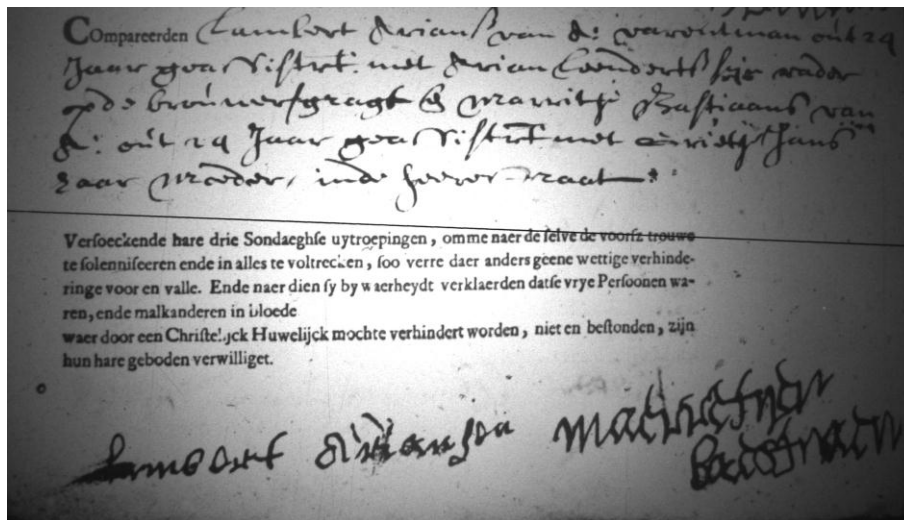 Compareerden Lambert Arians van A: varentman out 29
Jaar geassisteert: met Arian Leenderts sijn vader
op de brouwersgragt & Marritje Bastiaans van
A: out 29 Jaar geassisteert met Grietje Jans
haar Moeder, inde heere straat
Versoeckende hare drie Sondaeghse uytroepingen, omme naer de selve de voorsz trouwe
te solenniseeren ende in alles te voltrecken, soo verre daer anders geene wettige verhinde-
ringe voor en valle. Ende naer dien sy by waerheydt verklaerden datse vrye Persoonen wa-
ren, ende malkanderen in bloede
waer door een Christelijck Huwelijck mochte verhindert worden, niet en bestonden, zijn
hun hare geboden verwilliget.
Lambert Ariansen